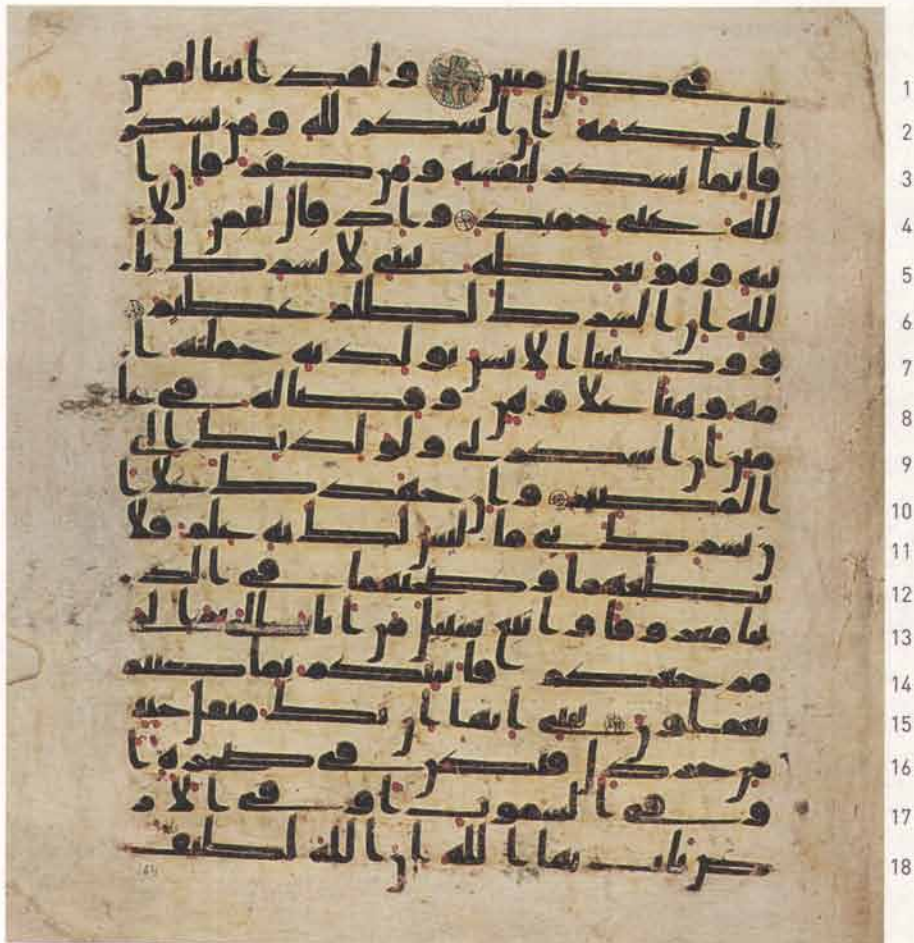 1 في ضلل مبين ولقد اتينا لقمن
2 الحكمة ان اشكر لله ومن يشكر
3 فانما يشكر لنفسه ومن كفر فان ا
4 لله غني حميد واذ قال لقمن لا
5 بنه وهو يعظه يبني لا تشرك با
6 لله ان الشرك لظلم عظيم
7 ووصينا الانسن بولديه حملته ا
8 مه وهنا علا وهن وفصاله في عا
9 مين ان اشكر لي ولولديك الي
10 المصير وان جهدك علا ا
11 ن تشرك بي ما ليس لك به علم فلا
12 تطعهما وصحبهما في الد
13 نيا معروفا واتبع سبيل من اناب الي ثم الي
14 مرجعكم فانبئكم بما كنتم
15 تعملون يبني انها ان تك مثقل حبة
16 من خردل فتكن في صخرة ا
17 و في السموت او في الار
18 ض يات بها الله ان الله لطيف